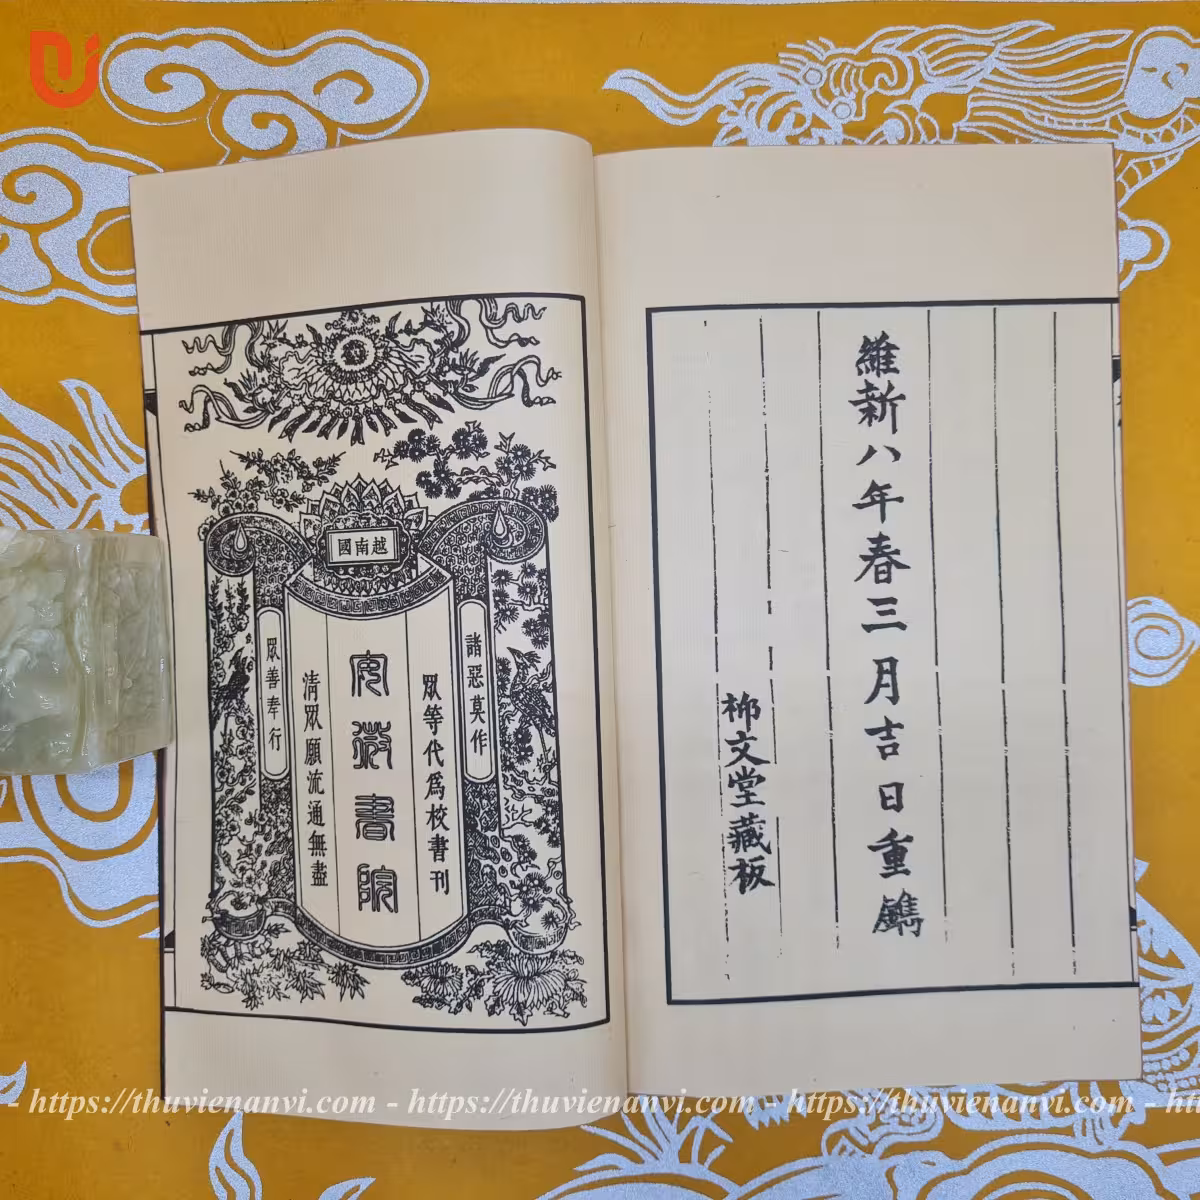 維新八年春三月吉日重鐫
柳文堂藏板
越南國
諸惡莫作
眾等代爲校書刊
安薇書院
清眾願流通無盡
眾善奉行
- https://thuvienanvi.com - https://thuvienanvi.com - https://thuvienanvi.com - htt